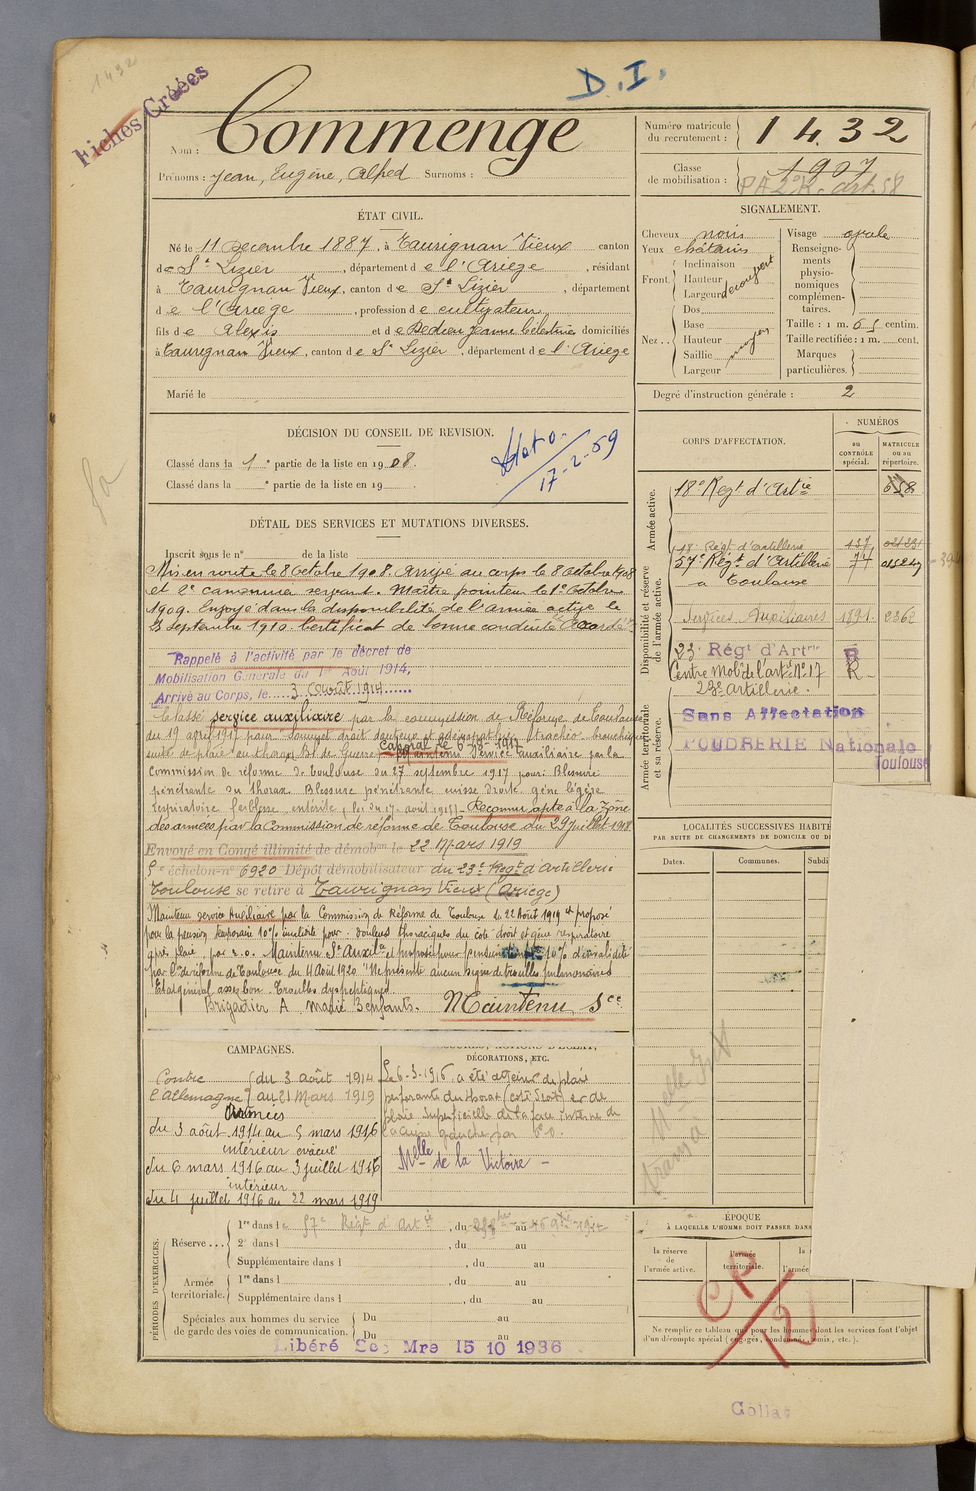 1432
Fiches Créées
D.I.
Nom : Commenge
Prénoms : Jean, Eugène, Alfred Surnoms :
Numéro matricule du recrutement : 1432
Classe de mobilisation : 1907
ÉTAT CIVIL.
Né le 11 Decembre 1887, à Taurignan Vieux canton
de St Lizier, département de l'Ariège, résidant
à Taurignan Vieux, canton de St Lizier, département
de l'Ariège, profession de cultivateur
fils de Alexis et de Dedieu Jeanne Célestine domiciliés
à Taurignan Vieux, canton de St Lizier, département de l'Ariège
Marié le
SIGNALEMENT.
Cheveux noirs Visage ovale
Yeux châtains
Front. Inclinaison
Hauteur
Largeur découvert
Nez.. Dos
Base
Hauteur
Saillie moyen
Largeur
Renseignements physionomiques complémentaires.
Taille : 1 m. 65 centim.
Taille rectifiée : 1 m. cent.
Marques particulières.
Degré d'instruction générale : 2
DÉCISION DU CONSEIL DE REVISION.
Classé dans la 1e partie de la liste en 1908.
Classé dans la e partie de la liste en 19
17-2-59
DÉTAIL DES SERVICES ET MUTATIONS DIVERSES.
Inscrit sous le n° de la liste
Mis en route le 8 Octobre 1908. Arrivé au corps le 8 Octobre 1908
et 2e canonnier servant. Maître pointeur le 1er Octobre
1909. Envoyé dans la disponibilité de l'armée active le
25 septembre 1910. Certificat de bonne conduite Accordé
Rappelé à l'activité par le décret de
Mobilisation Générale du 1er Août 1914,
Arrivé au Corps, le 3 Août 1914
Classé service auxiliaire par la commission de Réforme de Toulouse
du 19 avril 1917 pour
suite de plaie au thorax Bl. de Guerre, caporal le 6-8-1917 maintenu Service auxiliaire par la
Commission de réforme de Toulouse du 27 septembre 1917 pour: Blessure
pénétrante du thorax. Blessure pénétrante cuisse droite gêne légère
respiratoire faiblesse entérite (loi du 17 août 1915) - Reconnu apte à la Zône
des armées par la Commission de réforme de Toulouse du 29 Juillet 1918
Envoyé en Congé illimité de démobon le 22 Mars 1919
5e échelon no 6920 Dépôt démobilisateur du 23e Régt d'Artillerie
Toulouse se retire à Taurignan Vieux (Ariège)
Maintenu service Auxiliaire par la Commission de Réforme de Toulouse le 22 Août 1919 et proposé
pour la pension temporaire 10% invalidité pour: douleurs thoraciques du côté droit et gêne respiratoire
après plaie par e.o. Maintenu Sce Auxilre et proposé pour pension 10% d'invalidité
par Con de réforme de Toulouse du 4 Août 1920 "Ne présente aucun signe de troubles pulmonaires
Etat général assez bon. Troubles dyspeptiques
Brigadier A marié 3 enfants. Maintenu Sce
CORPS D'AFFECTATION.
NUMÉROS
au CONTRÔLE spécial.
MATRICULE ou au répertoire.
Armée active.
18e Régt d'Artie 658
Disponibilité et réserve de l'armée active.
18e Régt d'Artillerie 137
57e Régt d'Artillerie 77
à Toulouse
Services Auxiliaires 1891 2362
23e Régt d'Artrie R
Centre Mobr de l'artie No 17 R
23e artillerie.
Armée territoriale et sa réserve.
Sans Affectation
POUDRERIE Nationale
Toulouse
LOCALITÉS SUCCESSIVES HABITÉ
PAR SUITE DE CHANGEMENTS DE DOMICILE OU DE
Dates. Communes. Subdi
CAMPAGNES.
Contre l'Allemagne (du 3 août 1914
au 21 Mars 1919
Armées
du 3 août 1914 au 5 mars 1916
intérieur évacué
du 6 mars 1916 au 3 juillet 1916
intérieur
du 4 juillet 1916 au 22 mars 1919
DÉCORATIONS, ETC.
Le 6-3-1916 a été atteint de plaie
perforante du thorax (côté droit) et de
plaie superficielle de la face interne de
la cuisse gauche par e.o.
Melle de la Victoire -
PÉRIODES D'EXERCICES.
Réserve... 1re dans le 57e Régt d'Artie, du au
2e dans l , du au
Supplémentaire dans l , du au
Armée territoriale. 1re dans l , du au
Supplémentaire dans l , du au
Spéciales aux hommes du service de garde des voies de communication. Du au
Du au
Libéré Ser Mre 15 10 1936
ÉPOQUE
À LAQUELLE L'HOMME DOIT PASSER DANS
la réserve de l'armée active.
l'armée territoriale.
la
l'armée
CP/12
Ne remplir ce tableau que pour les hommes dont les services font l'objet
d'un décompte spécial (engagés, condamnés, omis, etc.).
Gollat